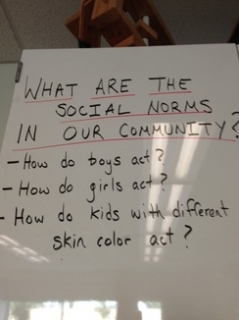 WHAT ARE THE
SOCIAL NORMS
IN OUR COMMUNITY?
- How do boys act?
- How do girls act?
- How do kids with different
skin color act?